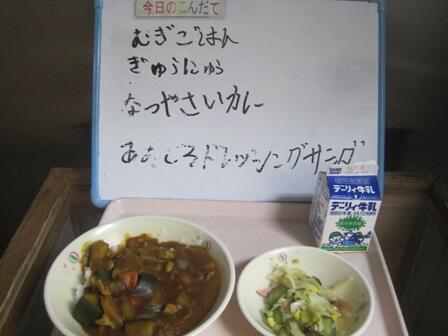 今日のこんだて
むぎごはん
ぎゅうにゅう
なつやさいカレー
あおじそドレッシングサラダ
デーリィ牛乳